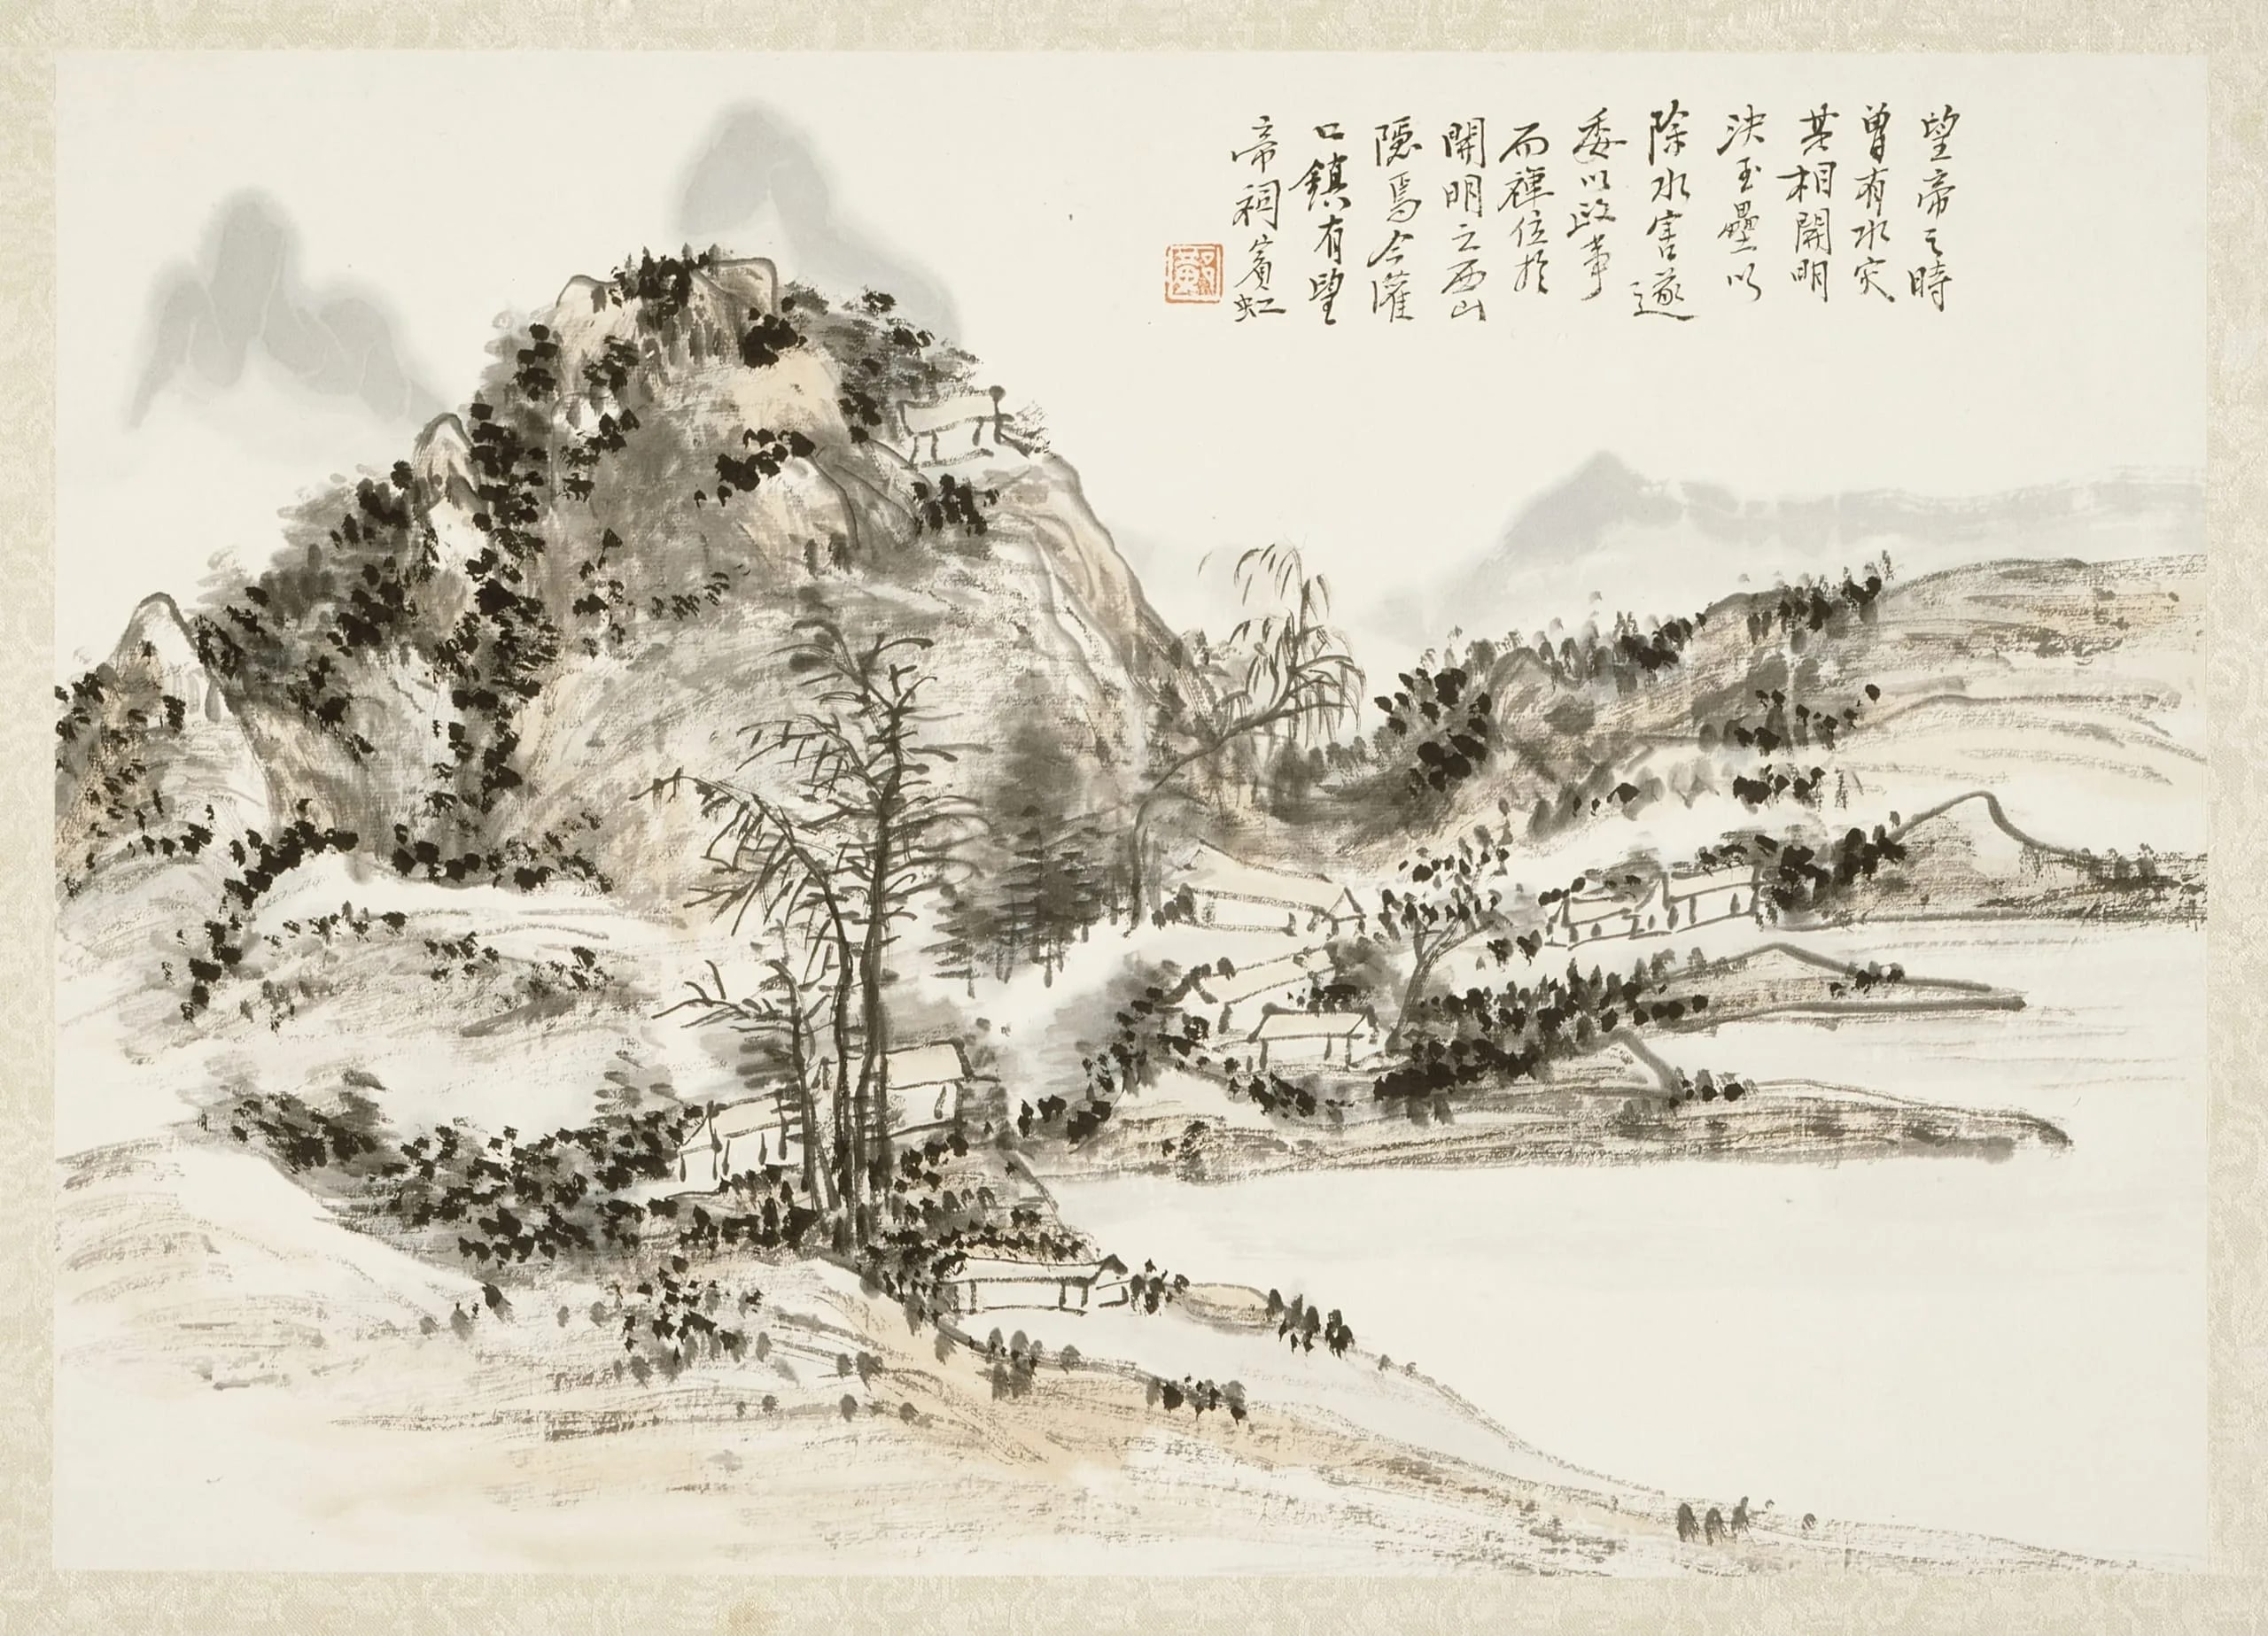 望帝之時
曾有水灾
其相開明
決玉壘以
除水害遂
委以政事
而禪位於
開明之西山
隱焉今灌
口鎮有望
帝祠賓虹